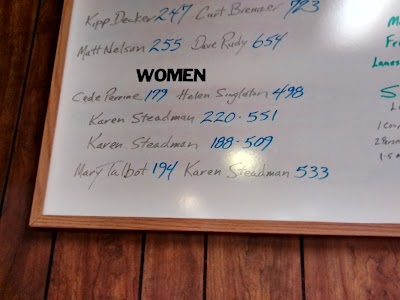 Kipp Denker 247 Curt Bremer 723
Matt Nelson 255 Dave Purdy 654
WOMEN
Cede Perrine 179 Helen Singleton 498
Karen Steadman 220 - 551
Karen Steadman 188 - 509
Mary Talbot 194 Karen Steadman 533